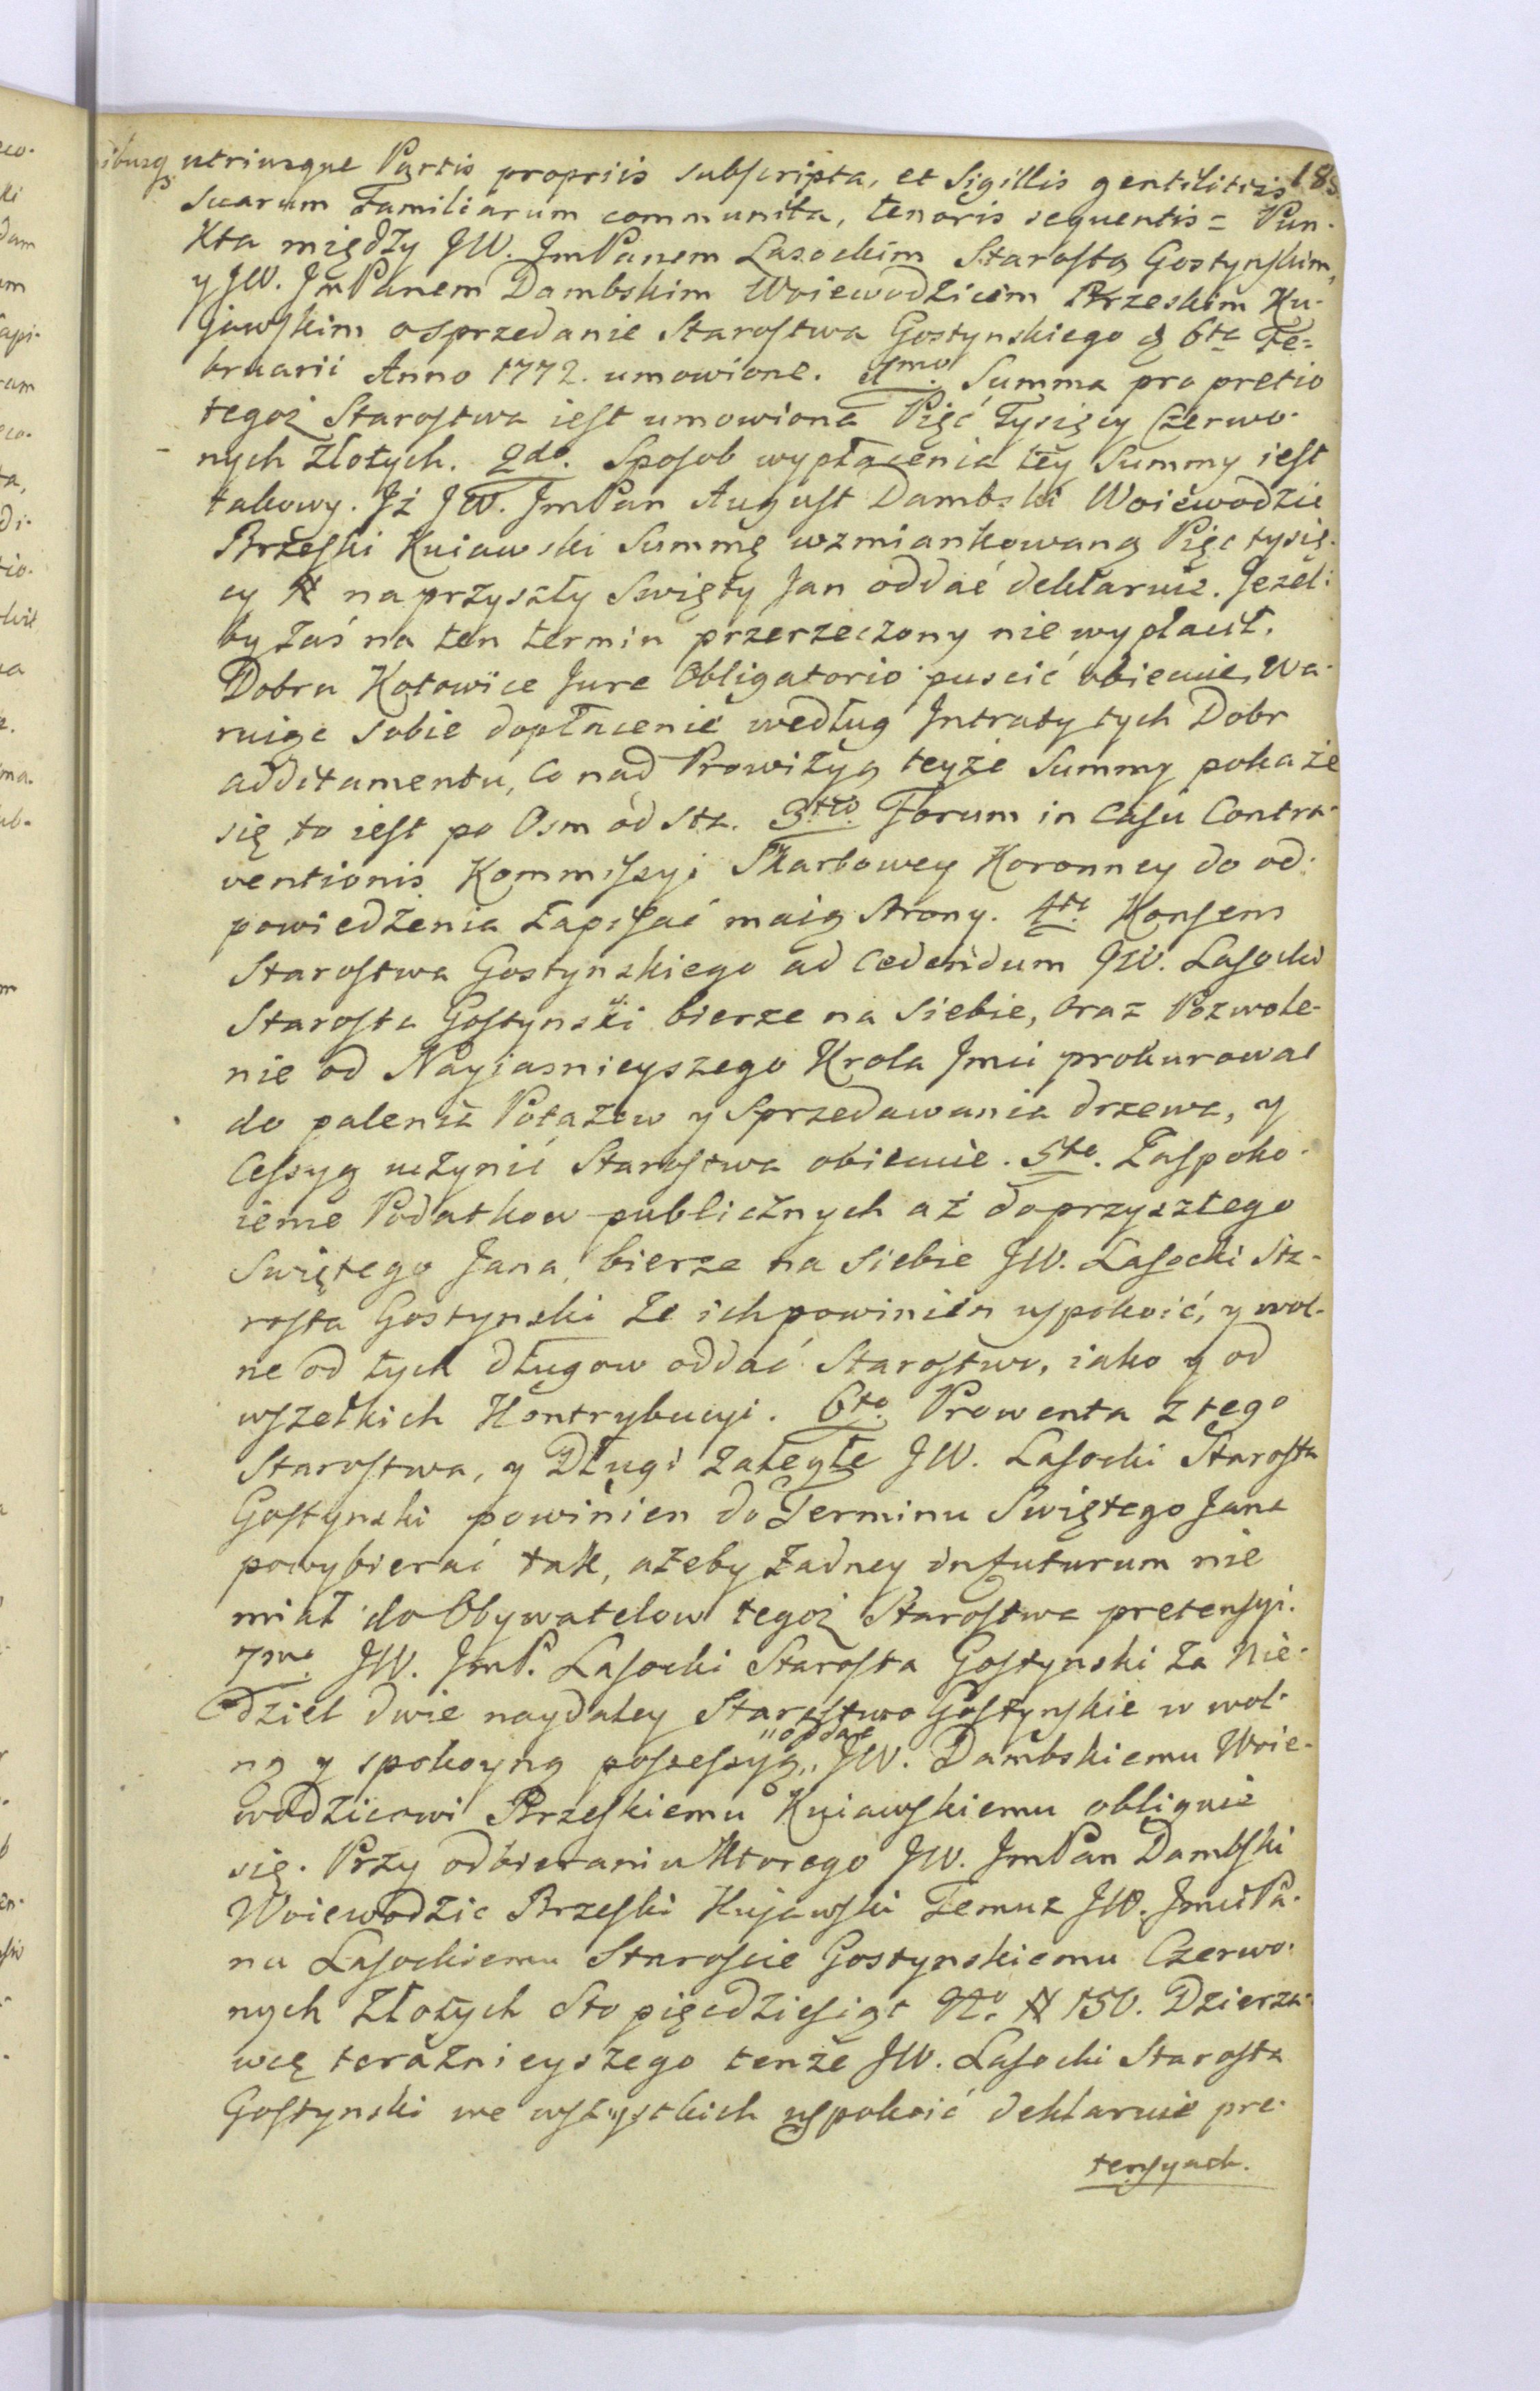 utriusque Partis propriis subscripta, et Sigillis gentilitiis 183
Suarum Familiarum communita, tenoris sequentis = Pun-
kta między JW. JmPanem Lasockim Starostą Gostynskim,
y JW. JmPanem Dambskim Woiewodzicem Brzeskim Ku-
jawskim o sprzedanie Starostwa Gostynskiego d 6ta Fe=
bruarii Anno 1772. umowione. 1mo. Summa pro pretio
tegoż Starostwa iest umowiona Pięć Tysięcy Czerwo-
nych Złotych. 2do. Sposob wypłacenia tey Summy iest
takowy. Jż JW. JmPan August Dambski Woiewodzic
Brzeski Kuiawski Summę wzmiankowaną Pięc tysię-
cy # na przyszły Swięty Jan oddać deklaruie. Jeżeli
by zaś na ten termin przerzeczony nie wypłacił.
Dobra Kotowice Jure Obligatorio puscić obiecuie, Wa-
ruiąc sobie dopłacenie według Jntraty tych Dobr
additamentu, co nad Prowizyą teyże Summy pokaże
się to iest po Osm od sta. 3tio. Forum in Casu Contra-
ventionis Kommissyi Skarbowey Koronney do od-
powiedzenia zapisać maią strony. 4to. Konsens
Starostwa Gostynskiego ad cedendum JW. Lasocki
Starosta Gostynski bierze na Siebie, oraz Pozwole-
nie od Nayiasnieyszego Krola Jmci prokurować
do palenia Potażow y Sprzedawania drzewa, y
Cessyą uczynić Starostwa obiecuie. 5to. Zaspoko-
ienie Podatkow publicznych aż do przyszłego
Swiętego Jana, bierze na Siebie JW. Lasocki Sta-
rosta Gostynski że ich powinien uspokoić, y wol-
ne od tych długow oddać Starostwo, iako y od
wszelkich Kontrybucyi. 6to. Prowenta z tego
Starostwa, y Długi zaległe JW. Lasocki Starosta
Gostynski powinien do Terminu Swiętego Jana
powybierać tak, ażeby żadney in futurum nie
miał do Obywatelow tegoż Starostwa pretensyi.
7mo. JW. JmP. Lasocki Starosta Gostynski za Nie-
dziel dwie naydaley Starostwo Gostynskie w wol-
ną y spokoyną possessyą „oddać„ JW. Dambskiemu Woie-
wodzicowi Brzeskiemu Kuiawskiemu obliguie
się. Przy odbieraniu ktorego JW. JmPan Dambski
Woiewodzic Brzeski Kujawski Temuż JW. JmciPa-
nu Lasockiemu Staroscie Gostynskiemu Czerwo-
nych Złotych Sto pięcdziesiąt No. # 150. Dzierża-
wcę teraznieyszego tenże JW. Lasocki Starosta
Gostynski we wszystkich uspokoić deklaruie pre-
tensyach.